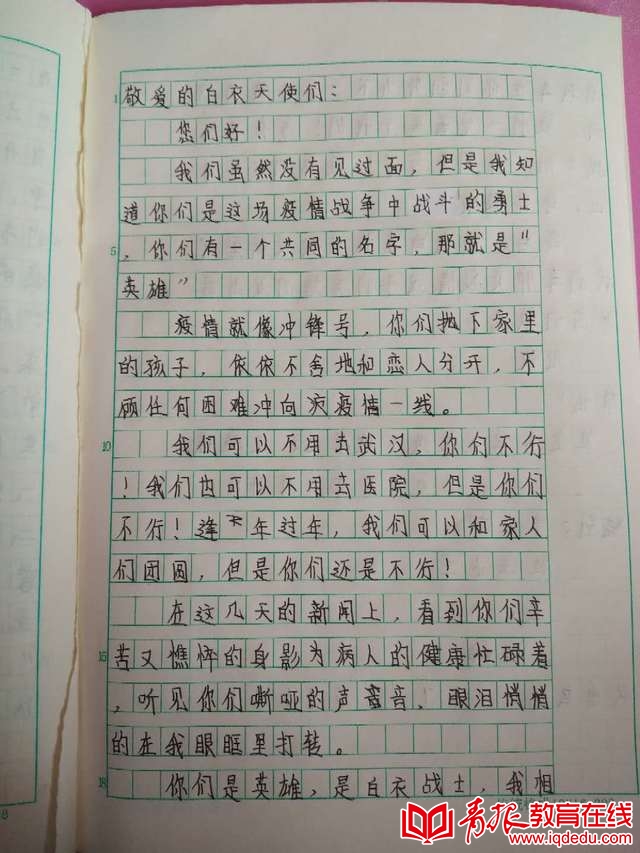 1 敬爱的白衣天使们：
您们好！
我们虽然没有见过面，但是我知
道你们是这场疫情战争中战斗的勇士
5 ，你们有一个共同的名字，那就是“
英雄”
疫情就像冲锋号，你们抛下家里
的孩子，依依不舍地和恋人分开，不
顾任何困难冲向疫情一线。
10 我们可以不用去武汉，你们不行
！我们也可以不用去医院，但是你们
不行！逢年过年，我们可以和家人
们团圆，但是你们还是不行！
在这几天的新闻上，看到你们辛
15 苦又憔悴的身影为病人的健康忙碌着
，听见你们嘶哑的声音，眼泪悄悄
的在我眼眶里打转。
18 你们是英雄，是白衣战士，我相
青报教育在线
www.iqdedu.com
8